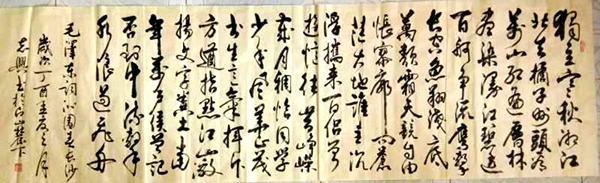 獨立寒秋湘江
北去橘子州頭看
萬山紅遍層林
盡染漫江碧透
百舸爭流鷹擊
長空魚翔淺底
萬類霜天競自由
悵寥廓問蒼
茫大地誰主沉
浮攜來百侶曾
遊憶往昔崢嶸
歲月稠恰同學
少年風華正茂
書生意氣揮斥
方遒指點江山激
揚文字糞土當
年萬戶侯曾記
否到中流擊
水浪遏飛舟
毛澤東詞沁園春長沙
歲次丁酉孟夏之月
志興書於山麓下